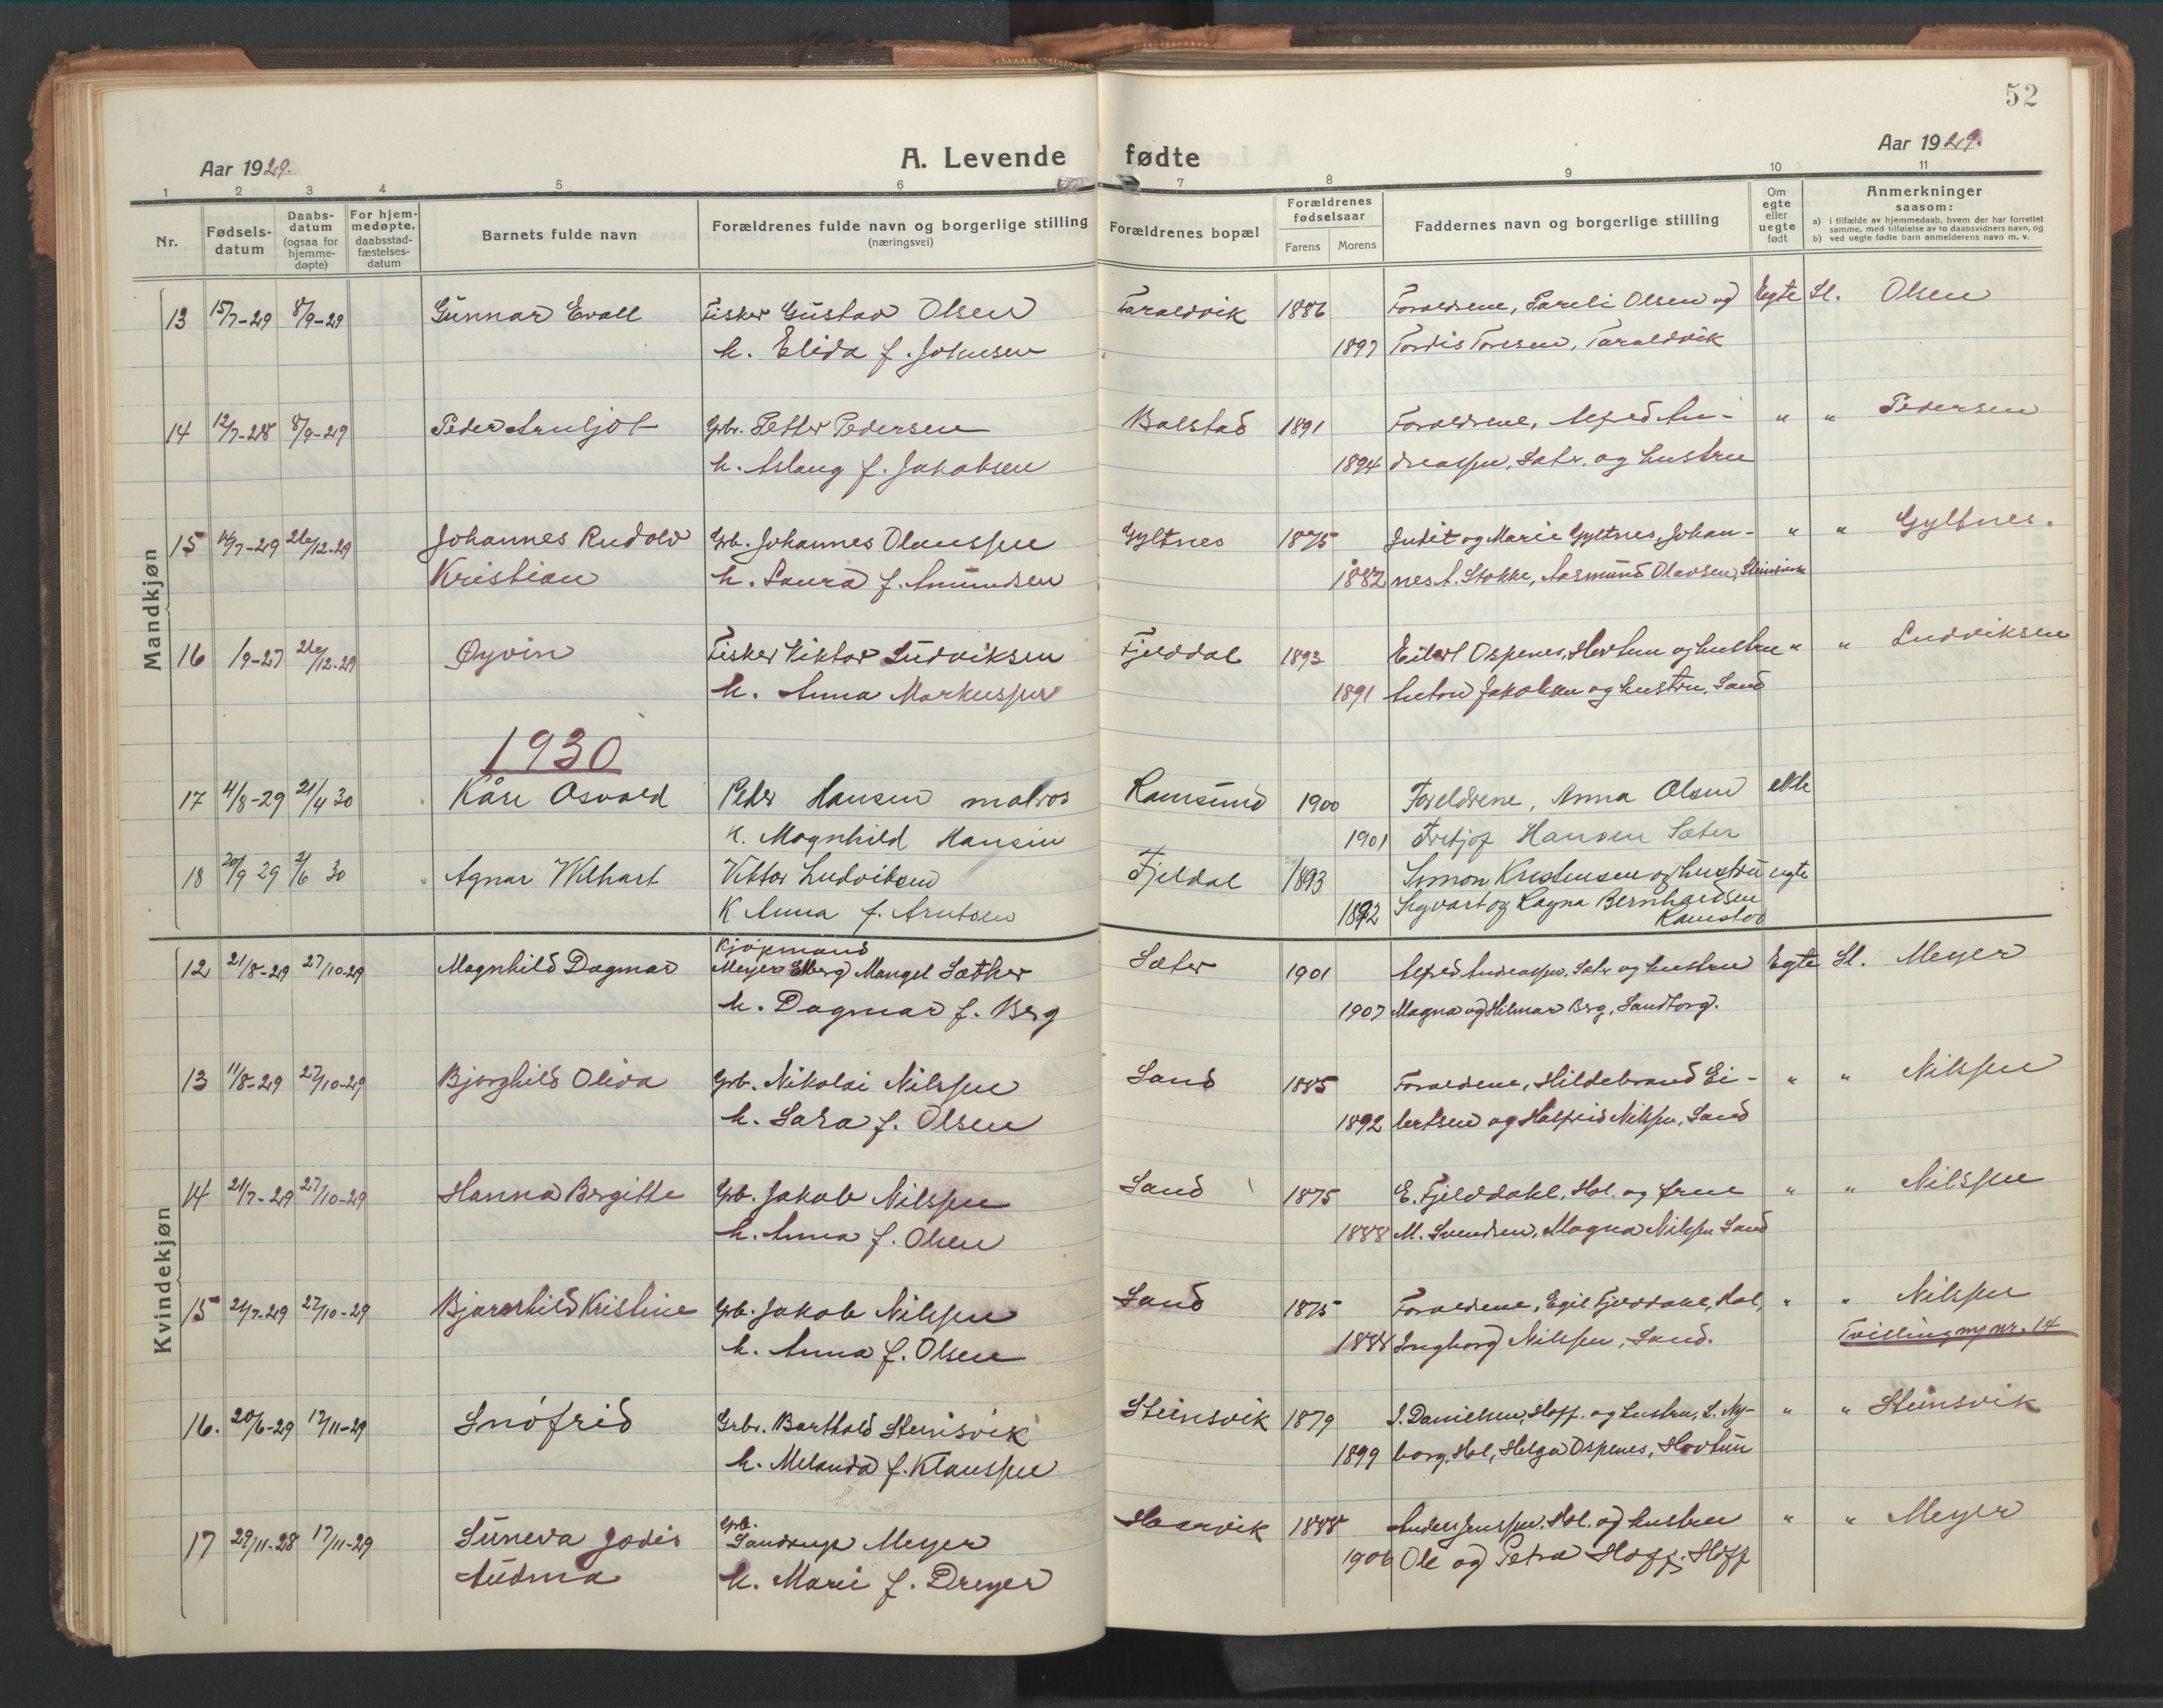 52
Aar 1929.
A. Levende fødte
Aar 1929.
1 2 3 4 5 6 7 8 9 10 11
Nr.
Fødsels-datum
Daabs-datum (ogsaa for hjemme-døpte)
For hjem-medøpte, daabsstad-fæstelses-datum
Barnets fulde navn
Forældrenes fulde navn og borgerlige stilling (næringsvei)
Forældrenes bopæl
Forældrenes fødselsaar
Farens Morens
Faddernes navn og borgerlige stilling
Om egte eller uegte født
Anmerkninger saasom:
a) i tilfælde av hjemmedaab, hvem der har forrettet samme, med tilføielse av to daabsvidners navn, og
b) ved uegte fødte barn anmelderens navn m. v.
Mandkjøn
13 15/7-29 8/9-29 Gunnar Evall Fisker Gustav Olsen Taraldvik 1886 Forældrene, Pareli Olsen og Egte Sl. Olsen
h. Elida f. Johnsen 1897 Tordis Toresen, Taraldvik
14 12/7-28 8/9-29 Peder Arnljot Grb. Petter Pedersen Balstad 1891 Forældrene, Alfred An- " " Pedersen
h. Aslaug f. Jakobsen 1894 dreassen, Sæter, og hustru
15 14/7-29 26/12-29 Johannes Rudolv Grb. Johannes Olaussen Gyltnes 1875 Judit og Marie Gyltnes, Johan- " " Gyltnes.
Kristian h. Laura f. Amundsen 1882 nes A. Stokke, Aasmund Olavsen, Steinsvik
16 1/9-27 26/12-29 Øyvin Fisker Viktor Ludviksen Fjelddal 1893 Eilert Ospenes, Hovtun og hustru " " Ludviksen
h. Anna Markussen 1891 Anton Jakobsen og hustru, Sand
1930
17 4/8-29 21/4 30 Kåre Osvald Peder Hansen matros Ramsund 1900 Foreldrene, Anna Olsen ekte
K. Magnhild Hansen 1901 Fritjof Hansen Sæter
18 20/9 29 2/6 30 Agnar Wilhart Viktor Ludviksen Fjeldal 1893 Simon Kristensen og hustru egte
K Anna f. Arntsen 1892 Sigvart og Ragna Bernhardsen
Kvindekjøn
Kjøpmand
12 21/8-29 27/10-29 Magnhild Dagmar Meyer Elberg Mangel Sæther Sæter 1901 Alfred Andreassen, Sæter og hustru Egte Sl. Meyer
h. Dagmar f. Berg 1907 Magna og Hilmar Berg, Sandtorg.
13 11/8-29 27/10-29 Bjørghild Oliva Grb. Nikolai Nilssen Sand 1885 Forældrene, Hildebrand Ei- " " Nilssen
h. Sara f. Olsen 1892 lertsen og Halfrid Nilssen, Sand
14 21/7-29 27/10-29 Hanna Bergitte Grb. Jakob Nilssen Sand 1875 E. Fjelddahl, Hol. og frue " " Nilssen
h. Anna f. Olsen 1888 M. Svendsen, Magna Nilssen Sand
15 21/7-29 27/10-29 Bjarnhild Kristine Grb. Jakob Nilssen Sand 1875 Forældrene, Egil Fjelddahl, Hol, " " Nilssen
h. Anna f. Olsen 1888 Ingborg Nilssen, Sand. Tvilling m. nr. 14
16. 20/6-29 17/11-29 Snøfrid Grbr. Barthold Steinsvik Steinsvik 1879 S. Danielsen, Hoff. og hustru, L. Ny- " " Steinsvik
h. Melanda f. Klaussen 1899 borg, Hol, Helga Ospenes, Hovtun
Grb.
17 29/11-28 17/11-29 Suneva Jodis Sandrup Meyer 1888 Anders Jenssen, Hol. og hustru " " Meyer
Audma h. Marie f. Dreyer 1906 Ole og Petra Hoff, Hoff